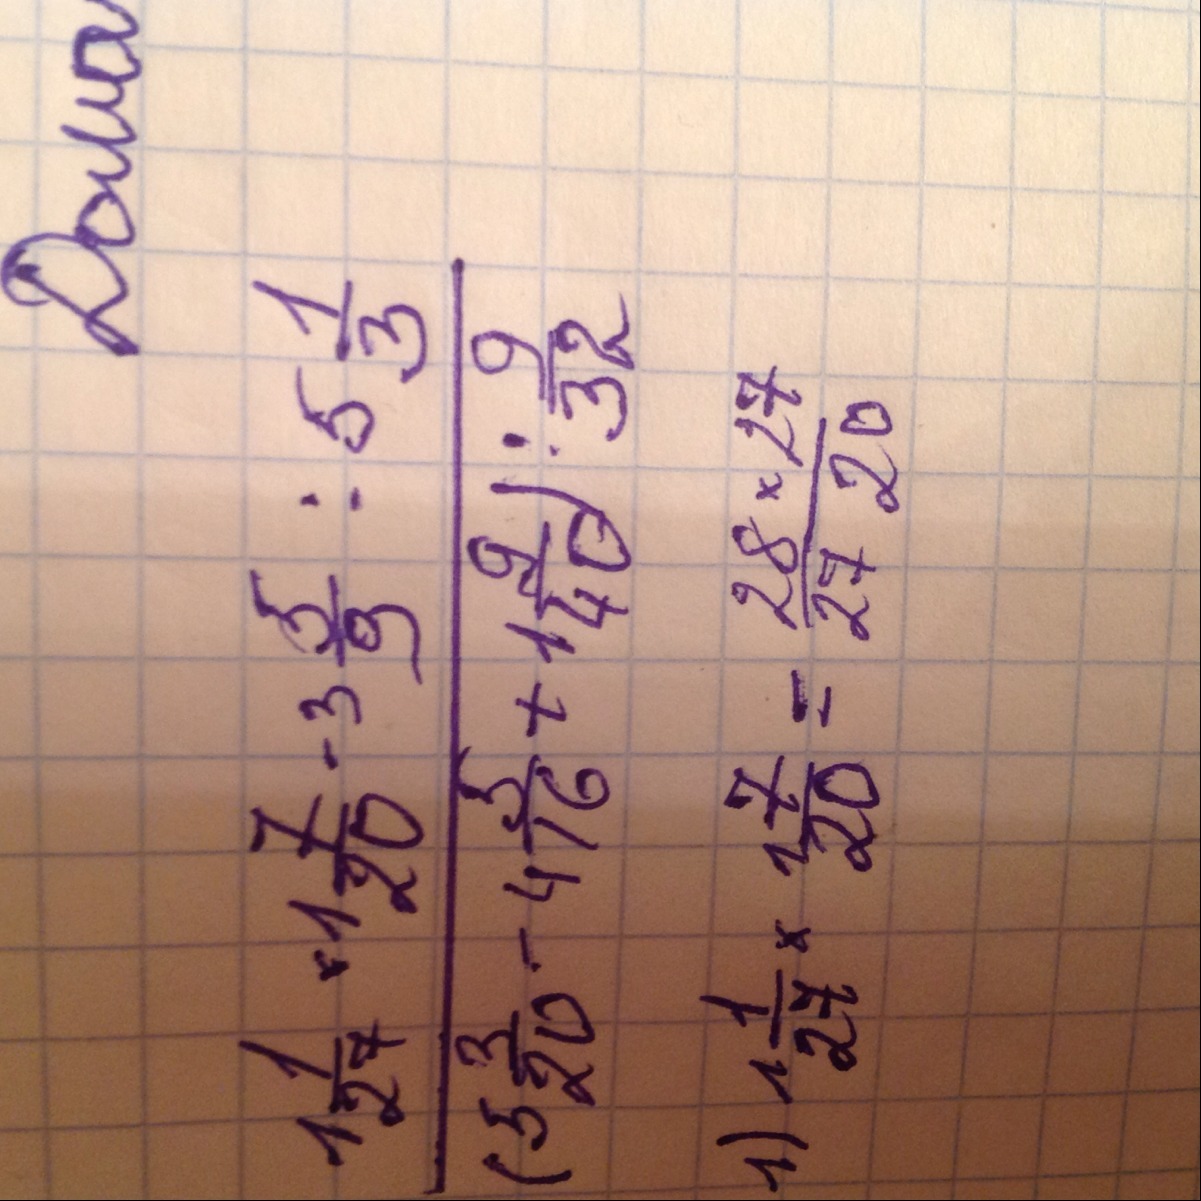 Дома
1 1/27 × 1 7/20 - 3 5/9 : 5 1/3
(5 3/20 - 4 5/16 + 1 9/40) : 9/32
1) 1 1/27 × 1 7/20 = 28 × 27 / 27 20